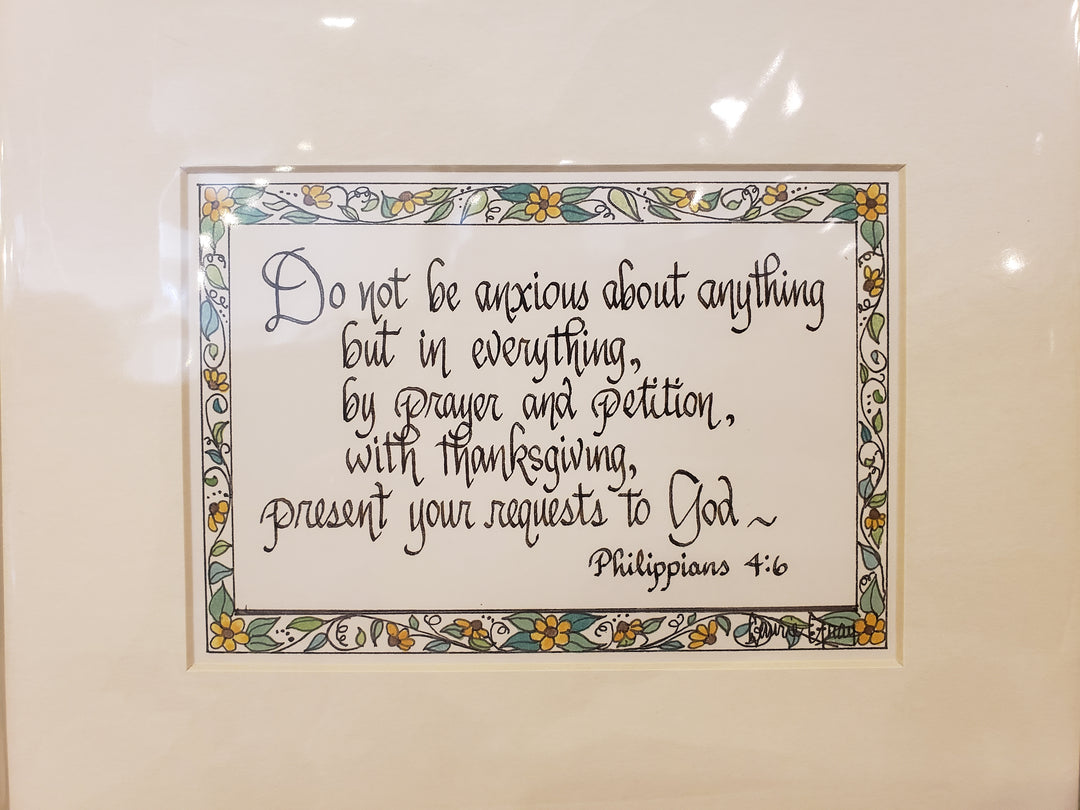 Do not be anxious about anything
but in everything,
by prayer and petition,
with thanksgiving,
present your requests to God ~
Philippians 4:6